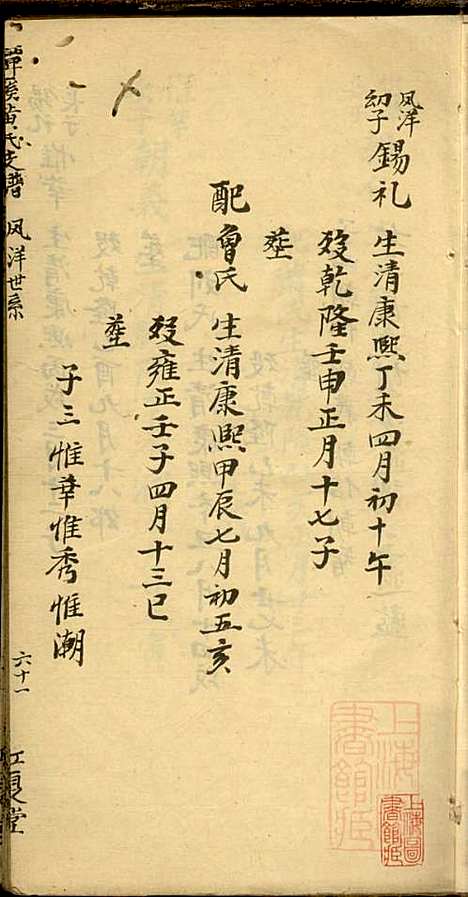 凤洋
幼子 錫礼 生清康熙丁未四月初十午
殁乾隆壬申正月十七子
塟
配魯氏 生清康熙甲辰七月初五亥
殁雍正壬子四月十三巳
塟
子三惟幸惟秀惟潮
黄氏支譜 凤洋世系 六十一 江夏堂
上海圖書館藏
上海圖書館藏